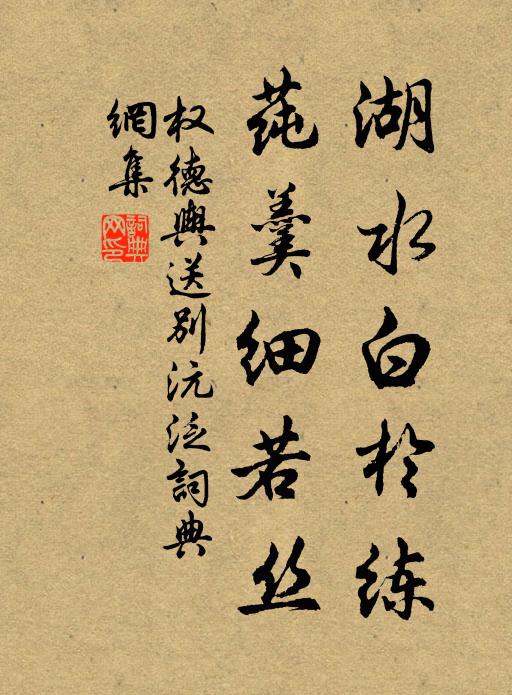 湖水白於练
莼羹细若丝
权德舆送别沅泛詞典
網集
詞典网印